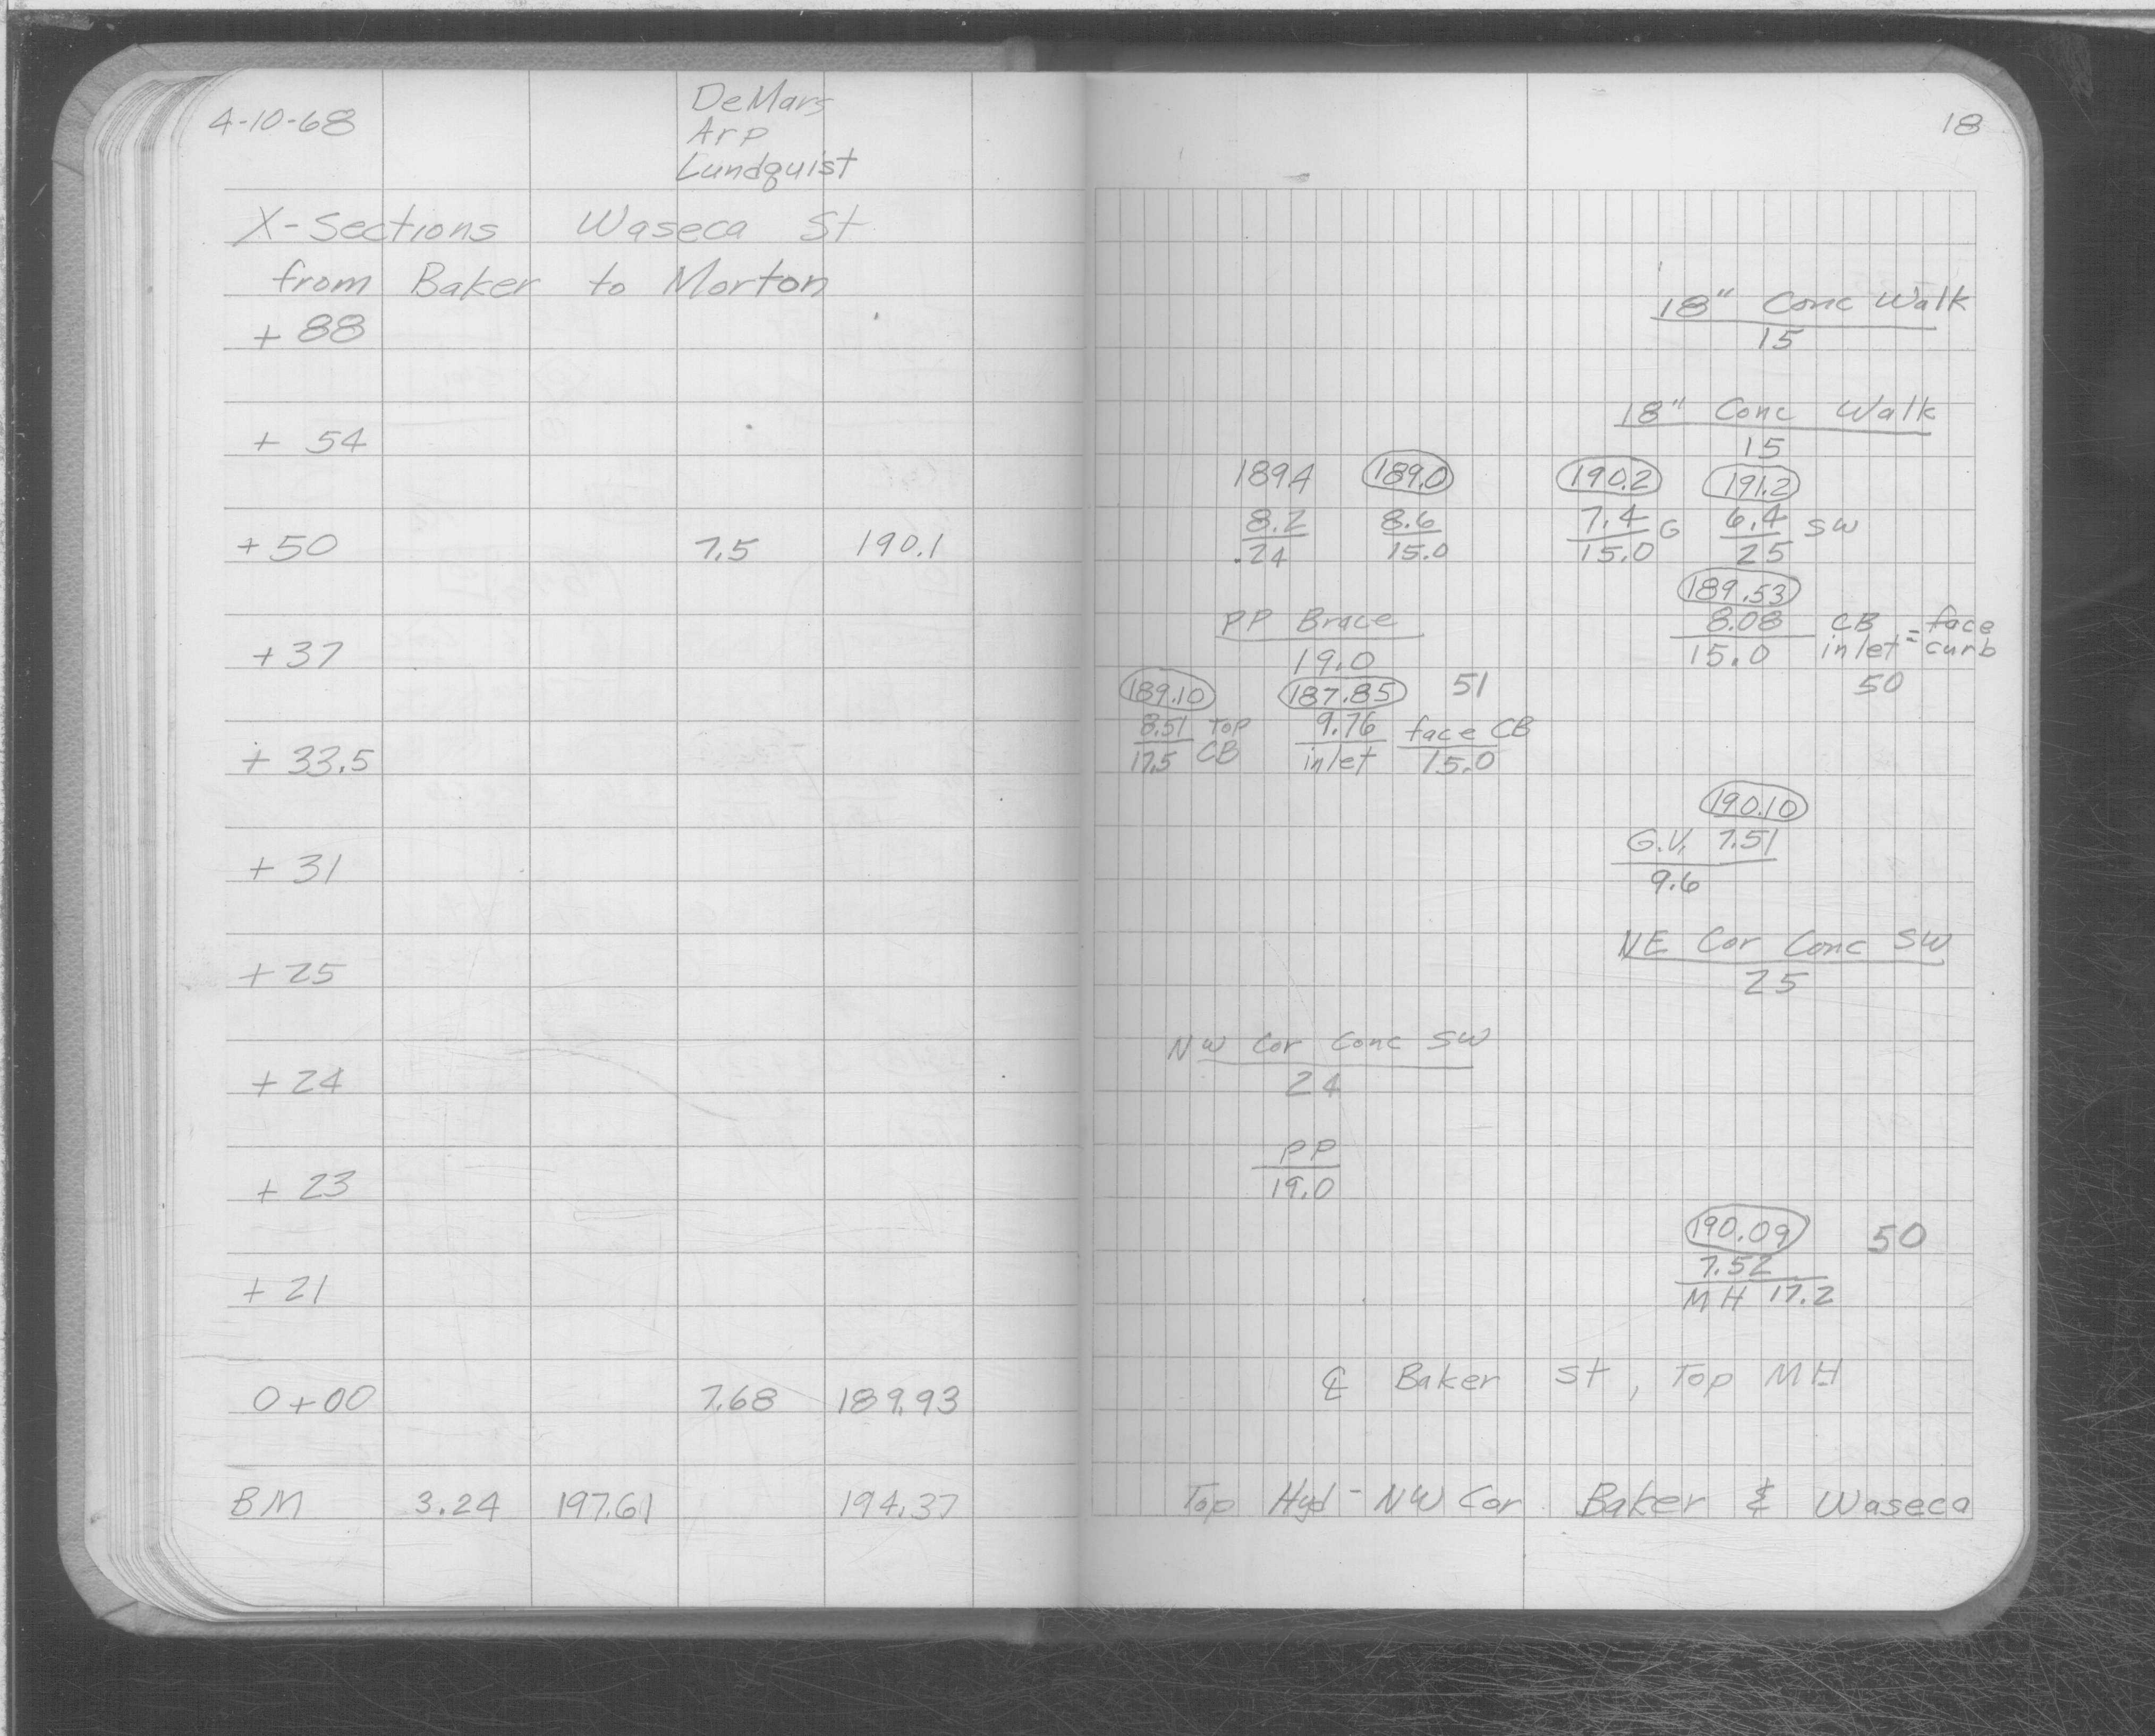 4-10-68
DeMars
Arp
Lundquist
X-Sections Waseca St
from Baker to Morton
+ 88
+ 54
+50 7.5 190.1
+37
+ 33.5
+ 31
+25
+24
+ 23
+ 21
0+00 7.68 189.93
BM 3.24 197.61 194.37
18
18" Conc Walk
15
18" Conc Walk
15
189.4 189.0 190.2 191.2
8.2 8.6 7.4 G 6.4 SW
24 15.0 15.0 25
189.53
PP Brace 8.08 CB = face
19.0 15.0 inlet curb
189.10 187.85 51 50
8.51 Top 9.76 face CB
17.5 CB inlet 15.0
190.10
G.V. 7.51
9.6
NE Cor Conc SW
25
NW Cor Conc SW
24
PP
19.0
190.09 50
7.52
MH 17.2
℄ Baker St, Top MH
Top Hyd - NW Cor Baker & Waseca